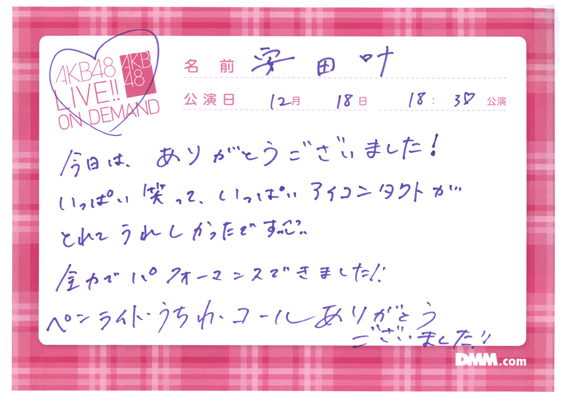 AKB48
LIVE!!
ON DEMAND
AKB
48
名前 安田叶
公演日 12月 18日 18:30 公演
今日は、ありがとうございました!
いっぱい笑って、いっぱいアイコンタクトが
とれてうれしかったです
全力でパフォーマンスできました!!
ペンライト・うちわ・コールありがとう
ございました!!
DMM.com